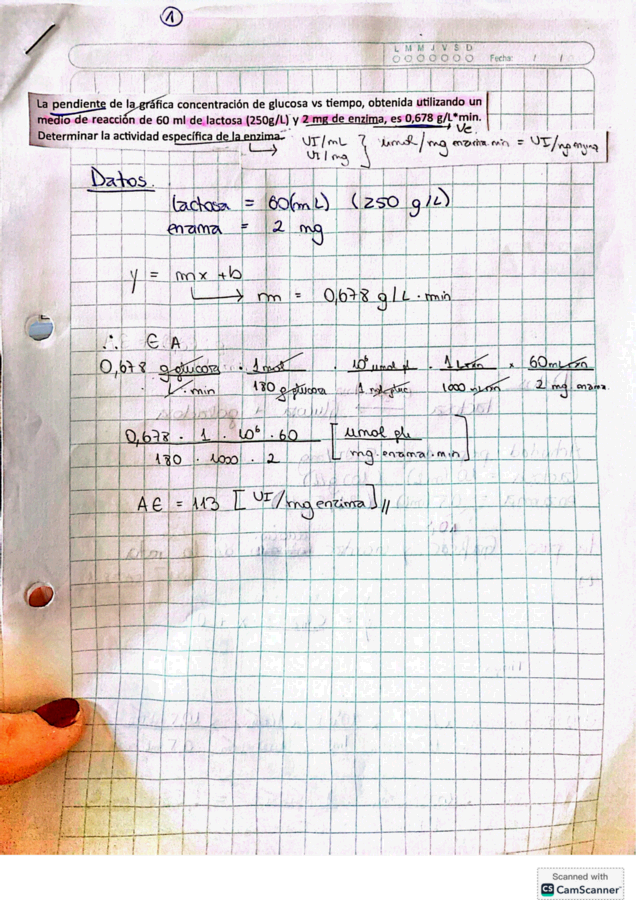 1
L M M J V S D
Fecha: / /
La pendiente de la gráfica concentración de glucosa vs tiempo, obtenida utilizando un
medio de reacción de 60 ml de lactosa (250g/L) y 2 mg de enzima, es 0,678 g/L*min.
Determinar la actividad específica de la enzima.
UI/mL
UI/mg } umol/mg enzima.min = UI/mg enzima
Datos.
lactosa = 60(mL) (250 g/L)
enzima = 2 mg
y = mx + b
m = 0,678 g/L · min
∴ E.A
0,678 g glucosa · 1 mol · 10⁶ umol · 1 L × 60 mL
L · min 180 g glucosa 1 mol 1000 mL 2 mg enzima
0,678 · 1 · 10⁶ · 60 [umol
180 · 1000 · 2 mg · enzima · min]
AE = 113 [UI/mg enzima] //
Scanned with
CS CamScanner